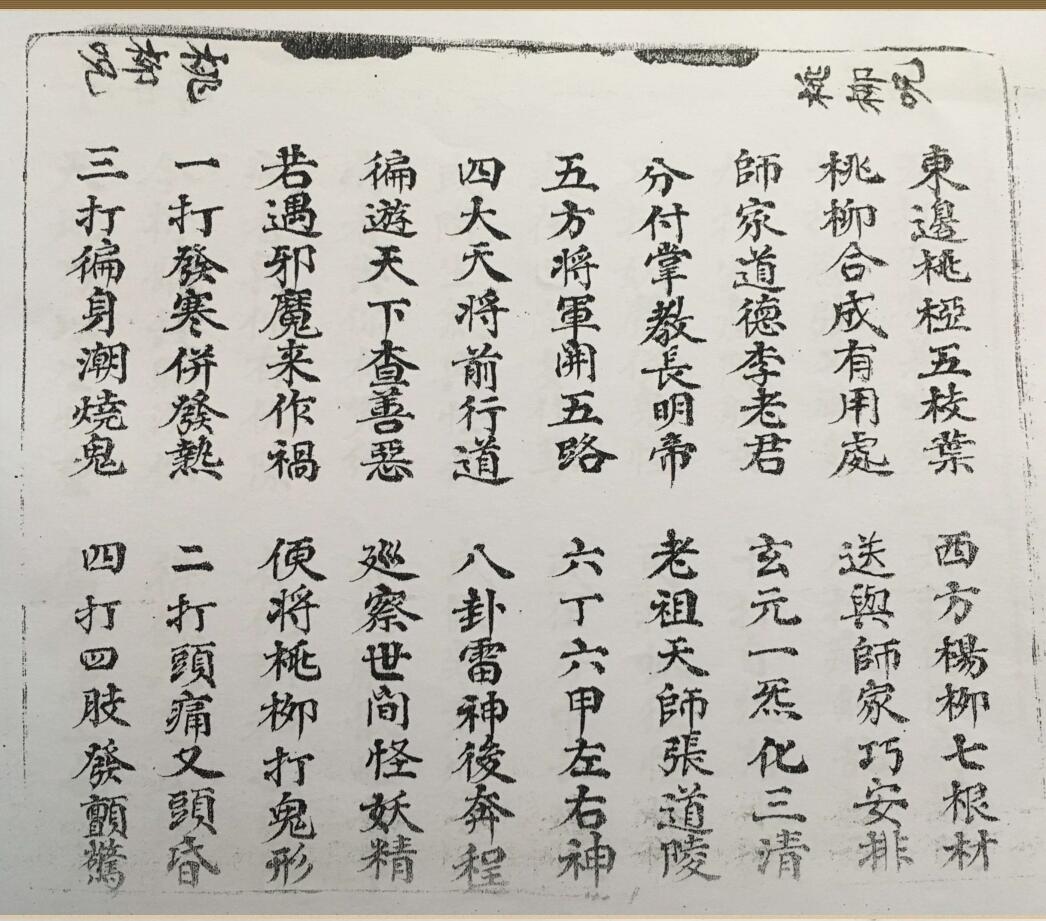 東邊桃椏五枝葉　西方楊柳七根材
桃柳合成有用處　送與師家巧安排
師家道德李老君　玄元一炁化三清
分付掌教長明帝　老祖天師張道陵
五方將軍開五路　六丁六甲左右神
四大天將前行道　八卦雷神後奔程
徧遊天下查善惡　廵察世间怪妖精
桃柳呪
若遇邪魔来作禍　便將桃柳打鬼形
一打發寒併發熱　二打頭痛又頭昏
三打徧身潮燒鬼　四打四肢發顫驚